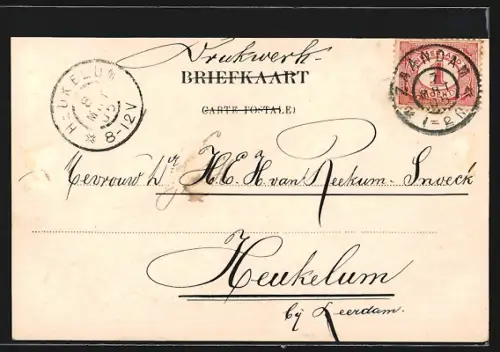 Drukwerk
BRIEFKAART
CARTE POSTALE)
HEUKELUM
8-12V
ZAANDAM
1
1-2N
Mevrouw
H.C.H. van Reekum-Snoeck
Heukelum
bij Leerdam.